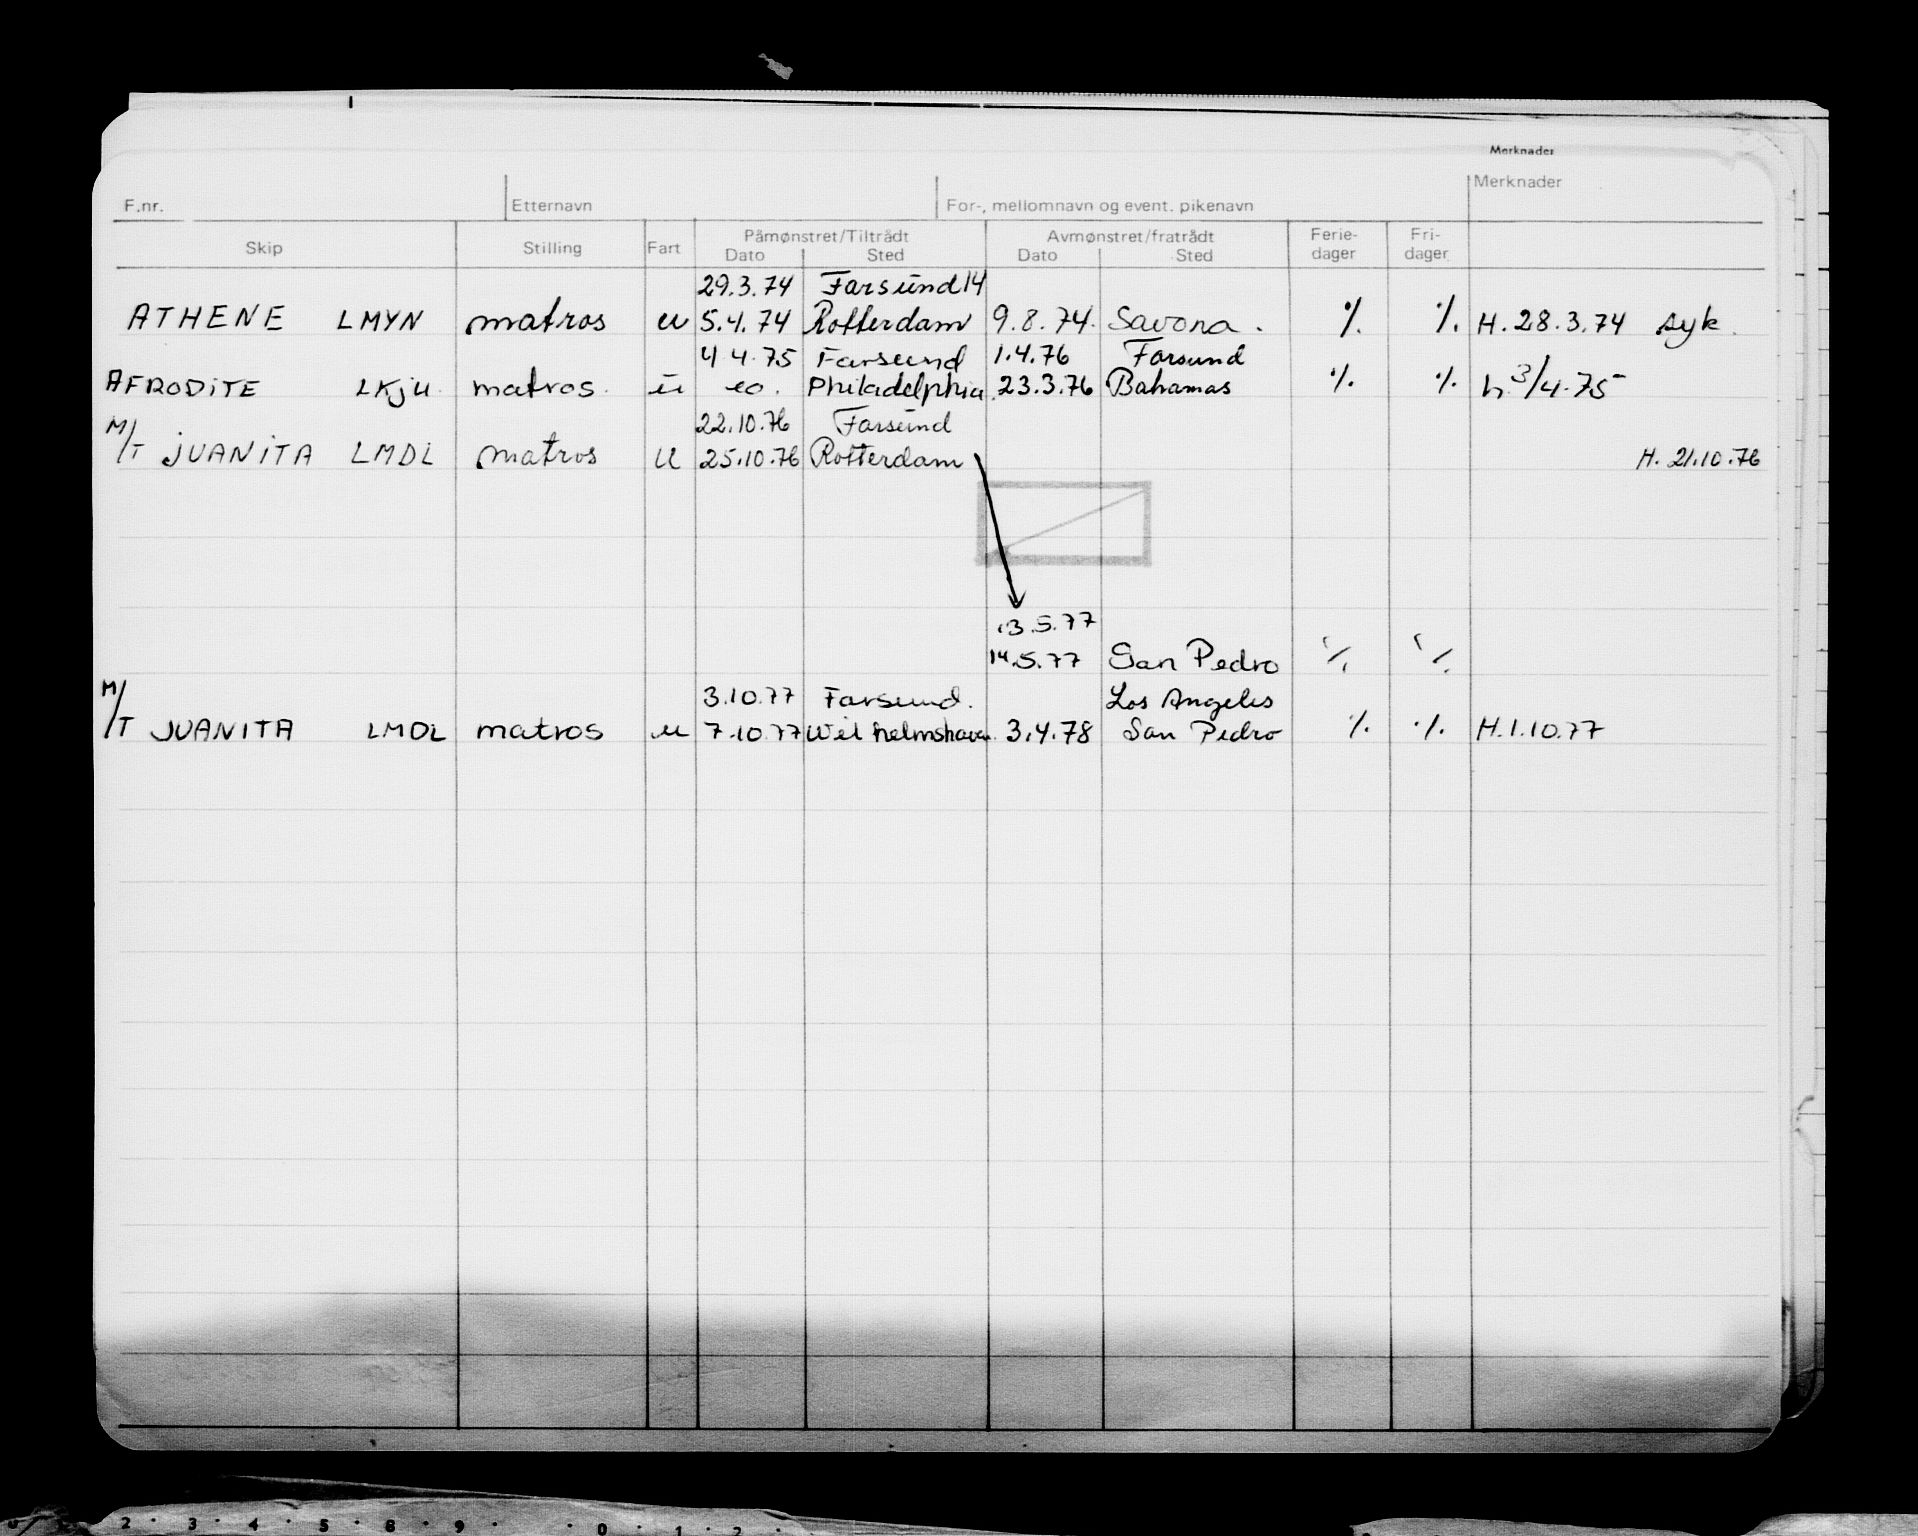 Merknader
Merknader
F.nr. Etternavn For-, mellomnavn og event. pikenavn
Skip Stilling Fart Påmønstret/Tiltrådt Avmønstret/fratrådt Ferie- Fri-
Dato Sted Dato Sted dager dager
29.3.74 Farsund 14
ATHENE LMYN matros u 5.4.74 Rotterdam 9.8.74. Savona. % % H.28.3.74 syk.
4 4.75 Farsund 1.4.76 Farsund
AFRODITE LKJU matros. u Philadelphia 23.3.76 Bahamas % % h 3/4.75
22.10.76 Farsund
M/T JUANITA LMDL matros u 25.10.76 Rotterdam H. 21.10.76
13.5.77
14.5.77 San Pedro % %
3.10.77 Farsund. Los Angeles
M/T JUANITA LMDL matros u 7.10.77 Wilhelmshaven 3.4.78 San Pedro % % H.1.10.77
2 3 4 5 8 9 0 1 2